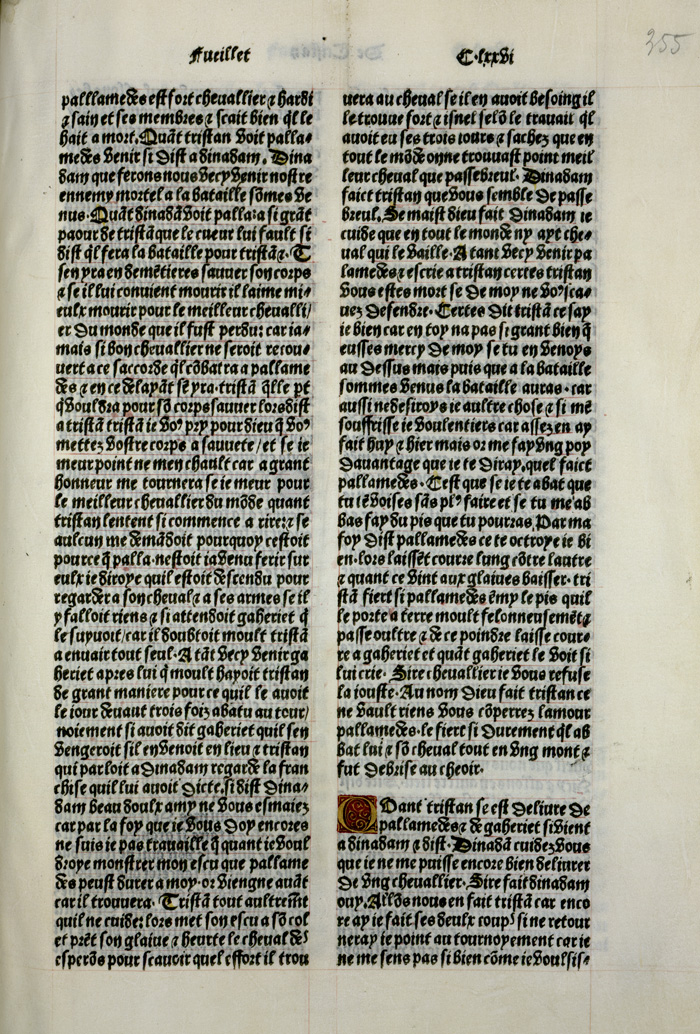 Fueillet
C.lxxVi
255
pallamedes est fort cheuallier ⁊ hardi
⁊ sain et ses membres ⁊ scait bien ql̃ le
hait a mort. Quãt tristan voit palla⸗
medes venir si dist a dinadam. Dina
dam que ferons nous vecy venir nostre
ennemy mortel a la bataille sõmes ve
nus. Quãt dinadã voit palla: a si grãt
paour de tristã que le cueur lui fault si
dist ql̃ fera la bataille pour tristã ⁊. T
sen yra en demẽtieres sauuer son corps
⁊ se il lui conuient mourir il laime mi⸗
eulx mourir pour le meilleur cheualli/
er du monde que il fust perdu: car ia⸗
mais si bon cheuallier ne seroit recou⸗
uert a ce saccorde ql̃ cõbatra a pallame
des ⁊ en ce delayãt sẽ yra. tristã q̃lle pt
q̃ vouldra pour sõ corps sauuer lors dist
a tristã tristã ie voꝰ pry pour dieu q̃ voꝰ
mettez vostre corps a sauuete / et se ie
meur point ne men chault car a grant
honneur me tournera se ie meur pour
le meilleur cheuallier du mõde quant
tristan lentent si commence a rire: ⁊ se
aulcun me demãdoit pourquoy cestoit
pource q̃ palla. nestoit ia venu ferir sur
eulx ie diroye quil estoit descendu pour
regarder a son cheual ⁊ a ses armes se il
y falloit riens ⁊ si attendoit gaheriet q̃
le suyuoit / car il doubtoit moult tristã
a enuair tout seul. A tãt vecy venir ga
heriet apres lui q̃ moult hayoit tristan
de grant maniere pour ce quil le auoit
le iour deuant trois foiz abatu au tour/
noiement si auoit dit gaheriet quil sen
vengeroit sil en venoit en lieu ⁊ tristan
qui parloit a dinadam regarde la fran
chise quil lui auoit dicte. si dist dina⸗
dam beau doulx amy ne vous esmaiez
car par la foy que ie vous doy encores
ne suis ie pas trauaille q̃ quant ie voul
droye monstrer mon escu que pallame
des peust durer a moy. or viengne auãt
car il trouuera. Tristã tout aultremt̃
quil ne cuide: lors met son escu a sõ col
et prẽt son glaiue ⁊ heurte le cheual des
esperõs pour scauoir quel effort il trou
uera au cheual se il en auoit besoing il
le trouue fort ⁊ isnel selõ le trauail ql̃
auoit eu ses trois iours ⁊ sachez que en
tout le mõde on ne trouuast point meil
leur cheual que passebreul. Dinadam
faict tristan que vous semble de passe
breul. Se maist dieu fait Dinadam ie
cuide que en tout le monde ny ayt che⸗
ual qui le vaille. A tant vecy venir pa
lamedes ⁊ escrie a tristan certes tristan
vous estes mort se de moy ne voꝰ sca⸗
uez defendre. Certes dit tristã ce say
ie bien car en toy na pas si grant bien q̃
eusses mercy de moy se tu en venoys
au dessus mais puis que a la bataille
sommes venus la bataille auras. car
aussi ne desiroys ie aultre chose ⁊ si me
souffrisse ie voulentiers car assez en ay
fait huy ⁊ hier mais or me fay vng poy
dauantage que ie te diray. quel faict
pallamedes. Cest que se ie te abat que
tu tẽ voises sãs plꝰ faire et se tu me ab
bas fay du pis que tu pourras. Par ma
foy dist pallamedes ce te octroye ie bi
en. lors laissẽt courre lung cõtre lautre
⁊ quant ce vint aux glaiues baisser. tri
stã fiert si pallamedes ẽmy le pis quil
le porte a terre moult felonneusemẽt ⁊
passe oultre ⁊ de ce poindre laisse cour⸗
re a gaheriet et quãt gaheriet le voit si
lui crie. Sire cheuallier ie vous refuse
la iouste. Au nom dieu fait tristan ce
ne vault riens vous cõperrez lamour
pallamedes. le fiert si durement ql̃ ab
bat lui ⁊ sõ cheual tout en vng mont ⁊
fut debrise au cheoir.
Quant tristan se est deliure de
pallamedes ⁊ de gaheriet si vient
a dinadam ⁊ dist. Dinadã cuidez vous
que ie ne me puisse encore bien deliurer
de vng cheuallier. Sire fait dinadam
ouy. Allõs nous en fait tristan car enco
re ay ie fait ses deulx coups si ne retour
neray ie point au tournoyement car ie
ne me sens pas si bien cõme ie voulsis⸗